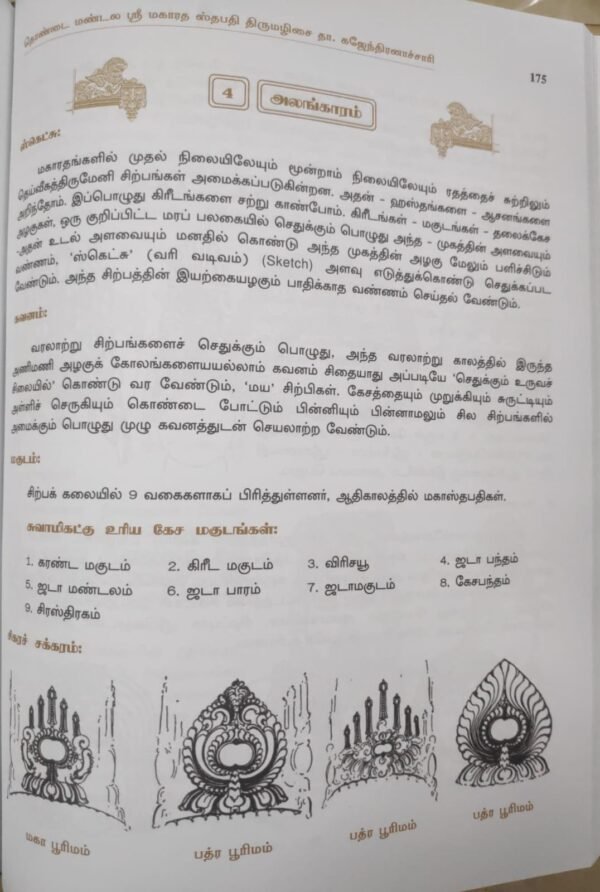 தொண்டை மண்டல ஸ்ரீ மகாரத ஸ்தபதி திருமழிசை தா. கஜேந்திரனாச்சாரி
175
4 அலங்காரம்
ஸ்கெட்சு:
மகாரதங்களில் முதல் நிலையிலேயும் மூன்றாம் நிலையிலேயும் ரதத்தைச் சுற்றிலும்
தெய்வீகத்திருமேனி சிற்பங்கள் அமைக்கப்படுகின்றன. அதன் - ஹஸ்தங்களை - ஆசனங்களை
அறிந்தோம். இப்பொழுது கிரீடங்களை சற்று காண்போம். கிரீடங்கள் - மகுடங்கள் - தலைக்கேச
அழகுகள், ஒரு குறிப்பிட்ட மரப் பலகையில் செதுக்கும் பொழுது அந்த - முகத்தின் அளவையும்
-அதன் உடல் அளவையும் மனதில் கொண்டு அந்த முகத்தின் அழகு மேலும் பளிச்சிடும்
வண்ணம், 'ஸ்கெட்சு' (வரி வடிவம்) (Sketch) அளவு எடுத்துக்கொண்டு செதுக்கப்பட
வேண்டும். அந்த சிற்பத்தின் இயற்கையழகும் பாதிக்காத வண்ணம் செய்தல் வேண்டும்.
கவனம்:
வரலாற்று சிற்பங்களைச் செதுக்கும் பொழுது, அந்த வரலாற்று காலத்தில் இருந்த
அணிமணி அழகுக் கோலங்களையயல்லாம் கவனம் சிதையாது அப்படியே 'செதுக்கும் உருவச்
சிலையில்' கொண்டு வர வேண்டும், 'மய' சிற்பிகள். கேசத்தையும் முறுக்கியும் சுருட்டியும்
அள்ளிச் செருகியும் கொண்டை போட்டும் பின்னியும் பின்னாமலும் சில சிற்பங்களில்
அமைக்கும் பொழுது முழு கவனத்துடன் செயலாற்ற வேண்டும்.
மகுடம்:
சிற்பக் கலையில் 9 வகைகளாகப் பிரித்துள்ளனர், ஆதிகாலத்தில் மகாஸ்தபதிகள்.
சுவாமிகட்கு உரிய கேச மகுடங்கள்:
1. கரண்ட மகுடம் 2. கிரீட மகுடம் 3. விரிசயூ 4. ஜடா பந்தம்
5. ஜடா மண்டலம் 6. ஜடா பாரம் 7. ஜடாமகுடம் 8. கேசபந்தம்
9. சிரஸ்திரகம்
சிகரச் சக்கரம்:
மகா பூரிமம் பத்ர பூரிமம் பத்ர பூரிமம் பத்ர பூரிமம்